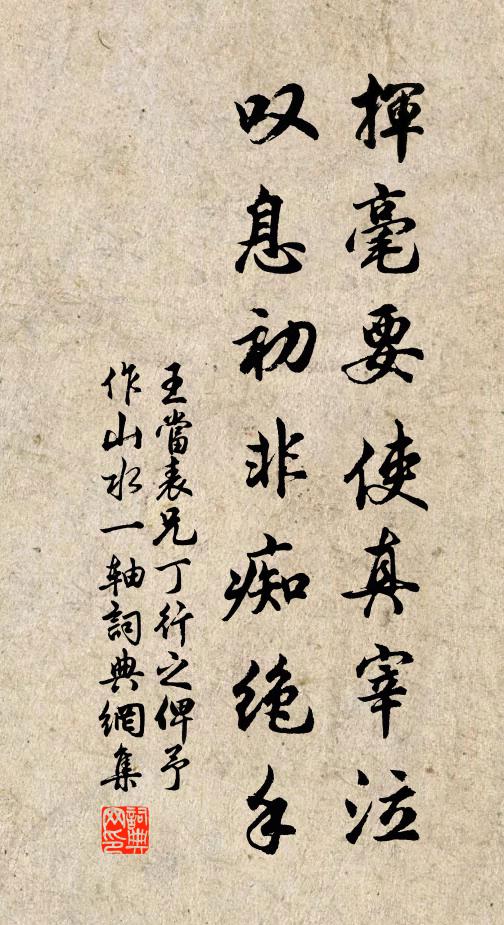 揮毫要使真宰泣
叹息初非痴绝手
王當表兄丁行之俾予
作山水一轴詞典網集
詞典网印